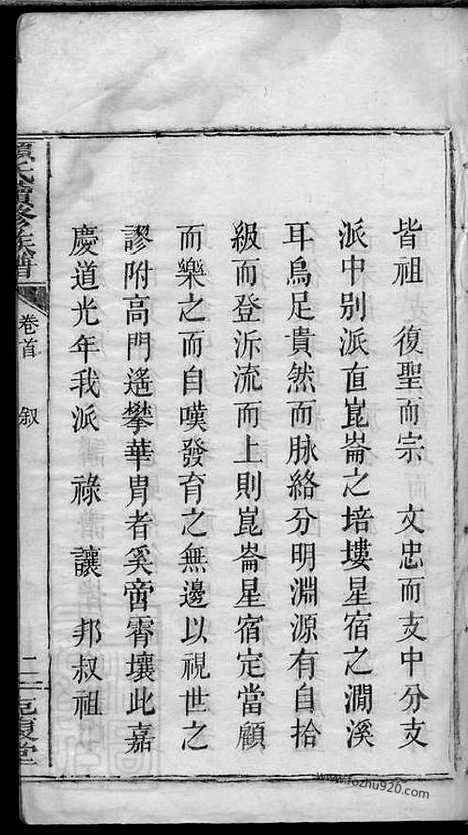 皆祖 復聖而宗 文忠而支中分支
派中别派直崑崙之培塿星宿之澗溪
耳烏足貴然而脉絡分明淵源有自拾
級而登泝流而上則崑崙星宿定當顧
而樂之而自嘆發育之無邊以視世之
謬附高門遙攀華胄者奚啻霄壤此嘉
慶道光年我派 祿 讓 邦叔祖
氏續修族譜
卷首 叙
二 復堂
www.fozhu920.com